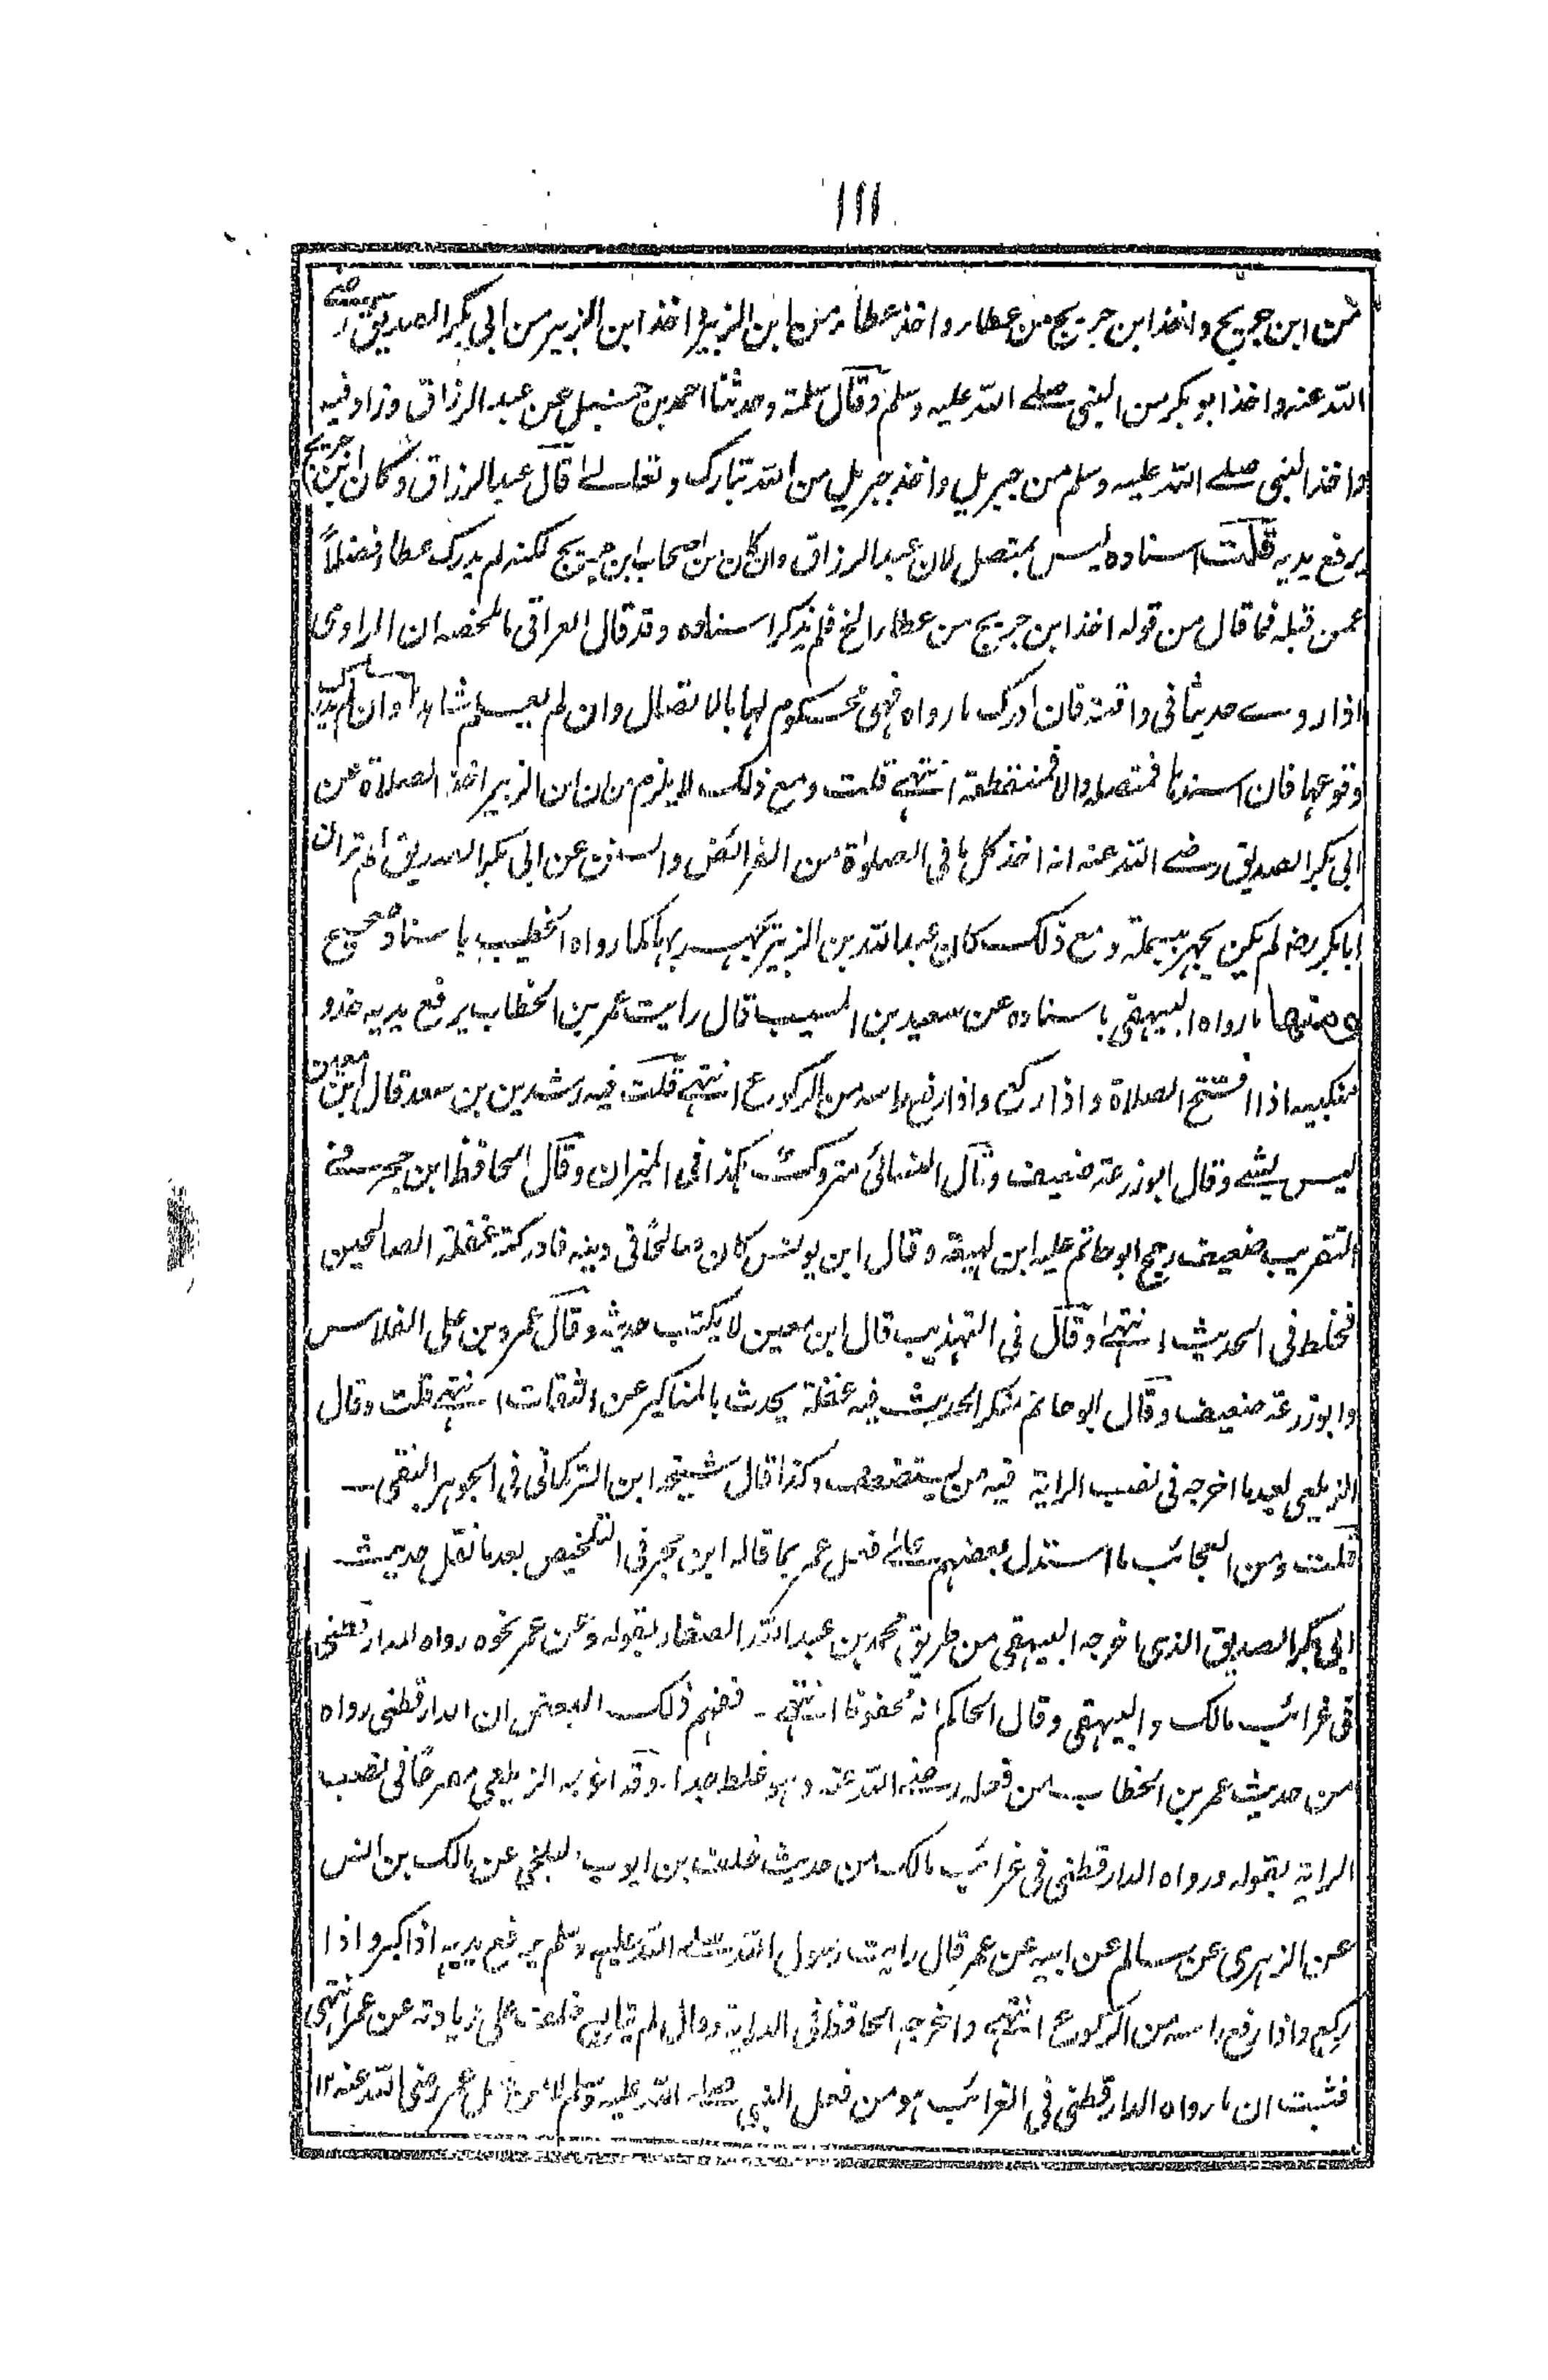 ١١١
من ابن جريج واخذ ابن جريج من عطاء واخذ عطاء من ابن الزبير واخذ ابن الزبير من ابى بكر الصديق رضے
الله عنه واخذ ابو بكر من النبى صلے الله عليه وسلم وقال سلمة وحدثنا احمد بن حنبل عن عبد الرزاق وزاد فيه
واخذ النبى صلے الله عليه وسلم من جبريل واخذ جبريل من الله تبارك وتعالے قال عبد الرزاق وكان ابن جريج
يرفع يديه قلت اسناده ليس بمتصل لان عبد الرزاق وان كان من اصحاب ابن جريج لكنه لم يدرك عطاء فضلاً
عمن قبله فما قال من قوله اخذ ابن جريج من عطاء الخ فلم يذكر اسناده وقد قال العراقى ما ملخصه ان الراوى
اذا روے حديثا فى واقعة فان ادرك ما رواه فهى محكوم لها بالاتصال وان لم يعلم شاهدها وان لم يدرك
وقوعها فان اسندها فمتصلة والا فمنقطعة انتهے قلت ومع ذلك لا يلزم من ان ابن الزبير اخذ الصلاة عن
ابى بكر الصديق رضے الله عنه انه اخذ كل ما فى الصلوٰة من الفرائض والسنن عن ابى بكر الصديق الم تر ان
ابا بكر رضہ لم يكن يجهر ببسملة ومع ذلك كان عبد الله بن الزبير يجهر بها كما رواه الخطيب باسناد صحيح
ومنها ما رواه البيهقى باسناده عن سعيد بن المسيب قال رايت عمر بن الخطاب يرفع يديه حذو
منكبيه اذا افتتح الصلاة واذا ركع واذا رفع راسه من الركوع انتهے قلت فيه رشدين بن سعد قال ابن معين
ليس بشے وقال ابو زرعة ضعيف وقال النسائى متروك كذا فى الميزان وقال الحافظ ابن حجر فے
التقريب ضعيف رجح ابو حاتم عليه ابن لهيعة وقال ابن يونس كان صالحًا فى دينه فادركته غفلة الصالحين
فخلط فى الحديث انتهےٰ وقال فى التهذيب قال ابن معين لا يكتب حديثه وقال عمرو بن على الفلاس
وابو زرعة ضعيف وقال ابو حاتم منكر الحديث فيه غفلة يحدث بالمناكير عن الثقات انتهے قلت وقال
الزيلعى بعد ما اخرجه فى نصب الراية فيه من يستضعف وكذا قال شيخه ابن التركمانى فى الجوهر النقى –
قلت ومن العجائب ما استدل بعضهم علےٰ فعل عمر بما قاله ابن حجر فى التلخيص بعد ما نقل حديث
ابى بكر الصديق الذى اخرجه البيهقى من طريق محمد بن عبد الله الصفار بقوله وعن عمر نحوه رواه الدارقطنى
فى غرائب مالك والبيهقى وقال الحاكم انه محفوظ انتهے - ففهم ذلك البعض ان الدارقطنى رواه
من حديث عمر بن الخطاب من فعله رضے الله عنه وهو غلط جدا وقد اخرجه الزيلعى مصرحًا فى نصب
الراية بقوله ورواه الدارقطنى فى غرائب مالك من حديث خلف بن ايوب البلخى عن مالك بن انس
عن الزهرى عن سالم عن ابيه عن عمر قال رايت رسول الله صلے الله عليه وسلم يرفع يديه اذا كبر واذا
ركع واذا رفع راسه من الركوع انتهے واخرجه الحافظ فى الدراية وقال لم يتابع خلف على زيادته عن عمر انتهى
فثبت ان ما رواه الدارقطنى فى الغرائب هو من فعل النبى صلے الله عليه وسلم لا من فعل عمر رضى الله عنه ١٢